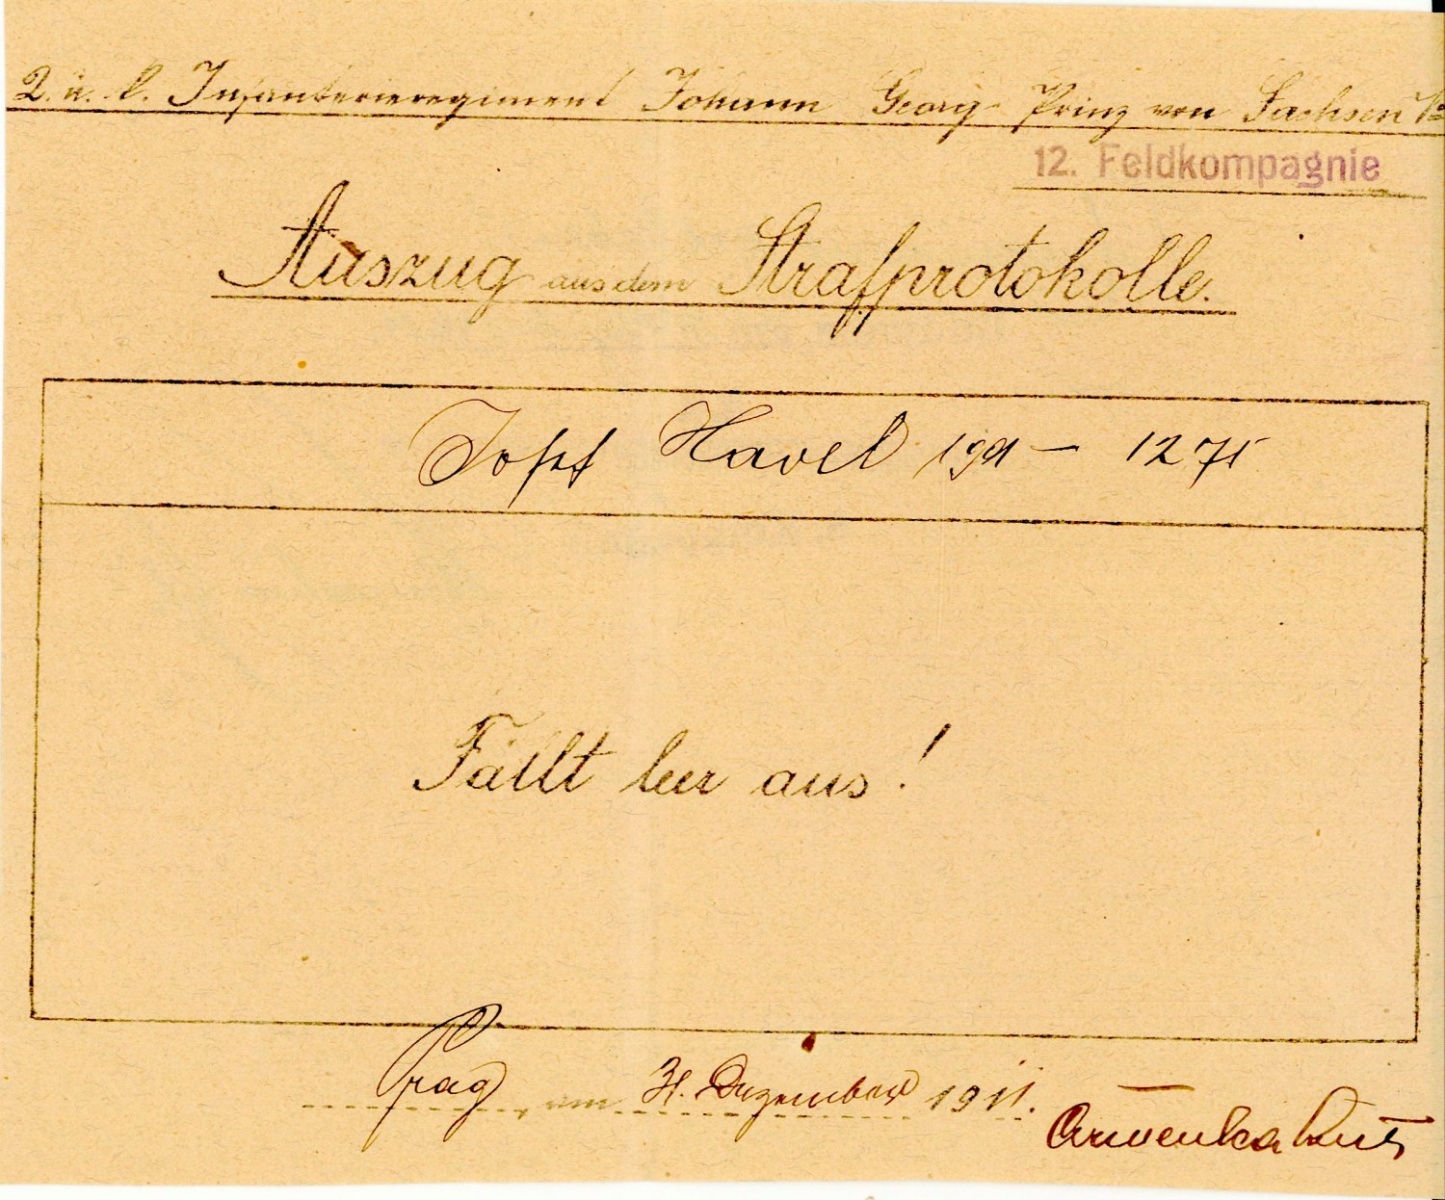 k. u. k. Infanterieregiment Johann Georg Prinz von Sachsen
12. Feldkompagnie
Auszug aus dem Strafprotokolle.
Josef Havel 1909 — 1275
Fällt leer aus!
Prag, am 31. Dezember 1911.